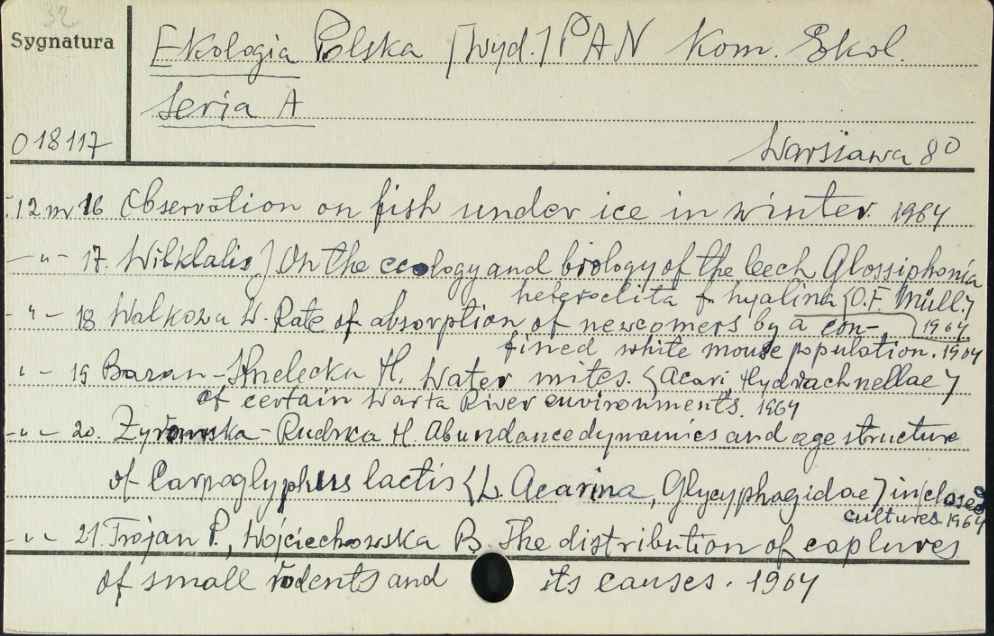 32
Sygnatura
Ekologia Polska [Wyd.] PAN Kom. Ekol.
Seria A
018117
Warszawa 80
12 nr 16 Observation on fish under ice in winter. 1964
-"- 17. Wilklalis J On the ecology and biology of the leech Glossiphonia
heteroclita f hyalina (O.F. Müll.)
1964
-"- 18 Walkowa W. Rate of absorption of newcomers by a con-
fined white mouse population. 1964
-"- 19 Baran-Strzelecka H. Water mites. (Acari, Hydrachnellae)
of certain Warta River environments. 1964
-"- 20. Żyromska-Rudzka H. Abundance dynamics and age structure
of Carpoglyphus lactis (L. Acarina, Glycyphagidae) in closed
cultures 1964
-"- 21. Trojan P., Wojciechowska B. The distribution of captures
of small rodents and its causes. 1964